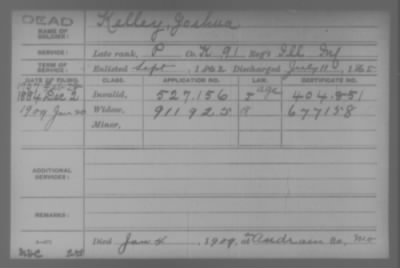 DEAD Kelley, Joshua
NAME OF SOLDIER:
SERVICE: Late rank, P Co. K 91 Reg't Ill Inf
TERM OF SERVICE: Enlisted Sept , 1862 Discharged July 11 , 1865
DATE OF FILING. CLASS. APPLICATION NO. LAW. CERTIFICATE NO.
1907
1884 Dec 2 Invalid, 527.156 age 404.851
1909 Jan Widow, 911 925 677158
Minor,
ADDITIONAL SERVICES:
REMARKS:
Died Jan 4 , 1909, at Andrain Co, Mo